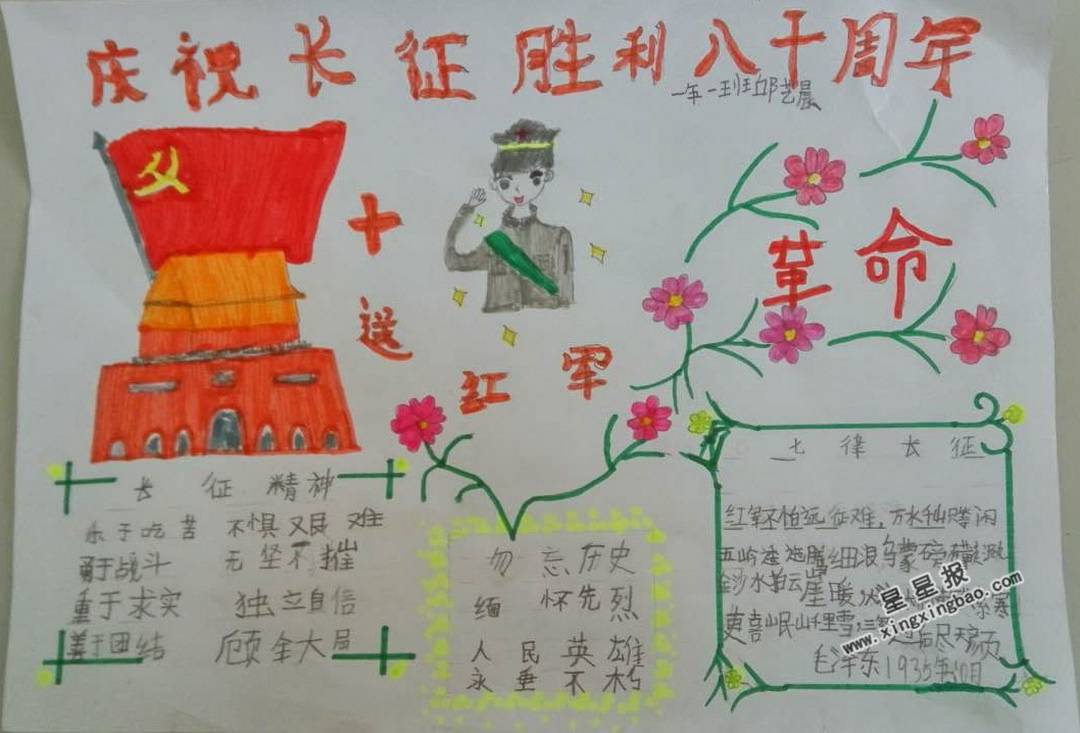 庆祝长征胜利八十周年
一年一班邱艺晨
十送红军
革命
长征精神
乐于吃苦 不惧艰难
勇于战斗 无坚不摧
重于求实 独立自信
善于团结 顾全大局
勿忘历史
缅怀先烈
人民英雄
永垂不朽
七律长征
红军不怕远征难,万水千山只等闲
五岭逶迤腾细浪乌蒙磅礴
金沙水拍云崖暖 寒
更喜岷山千里雪,三 后尽 颜
毛泽东1935年10月
星星报
www.xingxingbao.com